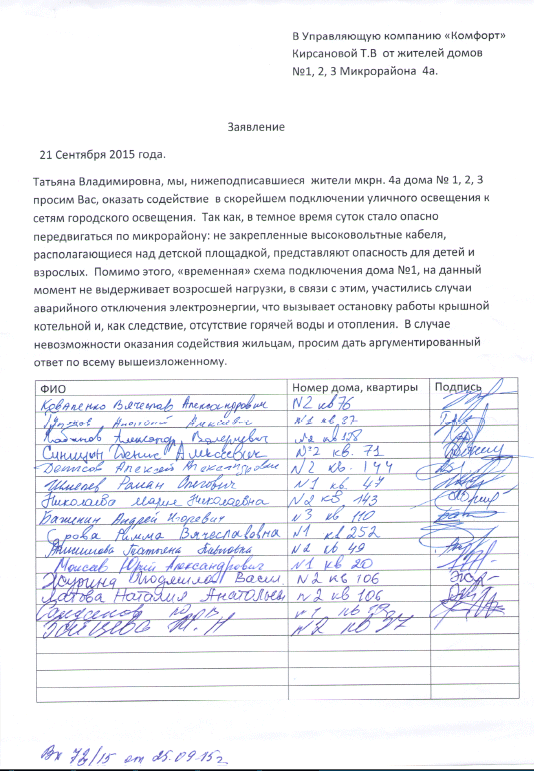 В Управляющую компанию «Комфорт»
Кирсановой Т.В от жителей домов
№1, 2, 3 Микрорайона 4а.
Заявление
21 Сентября 2015 года.
Татьяна Владимировна, мы, нижеподписавшиеся жители мкрн. 4а дома № 1, 2, 3
просим Вас, оказать содействие в скорейшем подключении уличного освещения к
сетям городского освещения. Так как, в темное время суток стало опасно
передвигаться по микрорайону: не закрепленные высоковольтные кабеля,
располагающиеся над детской площадкой, представляют опасность для детей и
взрослых. Помимо этого, «временная» схема подключения дома №1, на данный
момент не выдерживает возросшей нагрузки, в связи с этим, участились случаи
аварийного отключения электроэнергии, что вызывает остановку работы крышной
котельной и, как следствие, отсутствие горячей воды и отопления. В случае
невозможности оказания содействия жильцам, просим дать аргументированный
ответ по всему вышеизложенному.
ФИО Номер дома, квартиры Подпись
Коваленко Вячеслав Александрович №2 кв 76
Анатолий Алексеевич №1 кв 37
Александр Валерьевич №2 кв 138
Синицын Денис Алексеевич №2 кв. 71
Денисов Алексей Александрович №2 кв. 144
Шмелев Роман Олегович №1 кв. 47
Николаева Мария Николаевна №2 кв 143
Баженин Андрей Игоревич №3 кв 110
Серова Римма Вячеславовна №1 кв 252
Татьяна Павловна №2 кв 49
Моисав Юрий Александрович №1 кв 20
Людмила Васил. №2 кв 106
Латова Наталия Анатольев №2 кв 106
Ю.В №1 кв
Зайцева М.Н №2 кв 37
Вх 72/15 от 25.09.15г